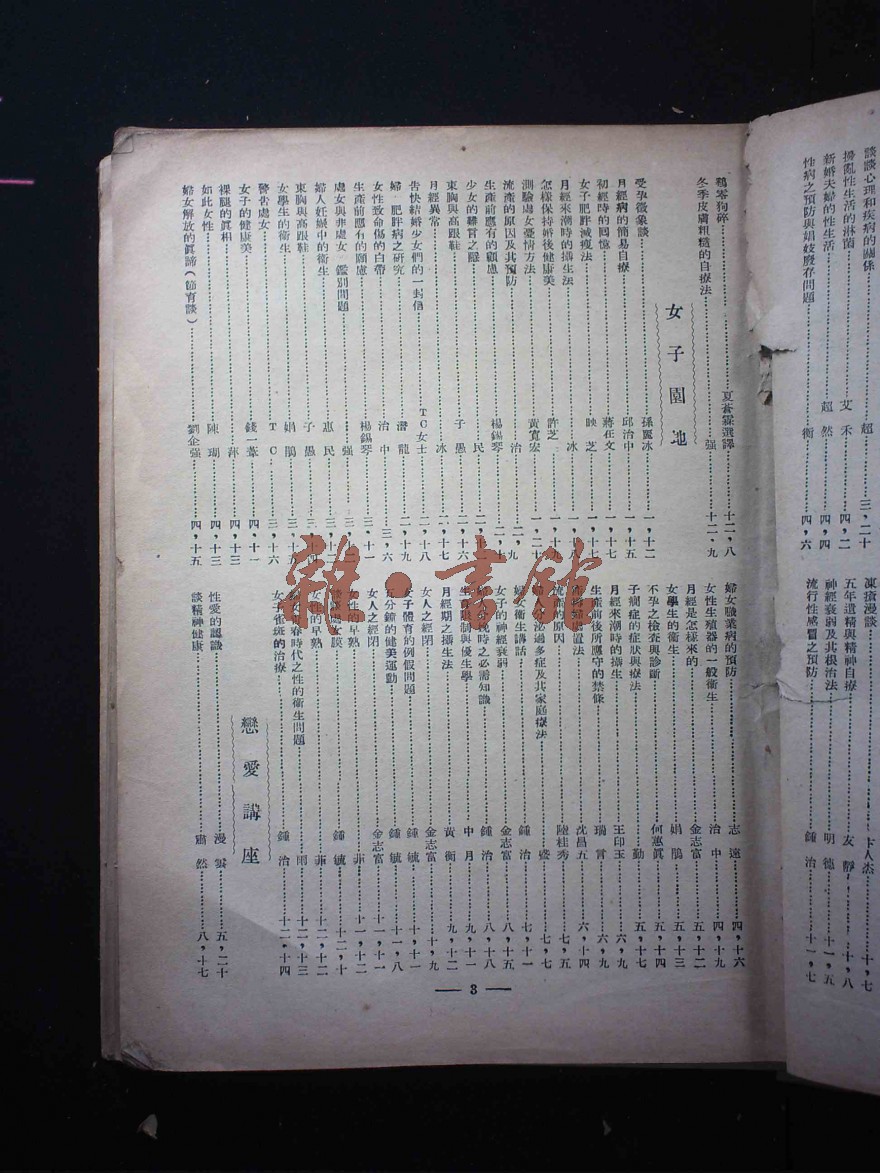 談談心理和疾病的關係……超……三，二十
擾亂性生活的淋菌……艾禾……四，二
新婚夫婦的性生活……超然……四，四
性病之預防與娼妓廢存問題……衡……四，六
凍瘡漫談……卞人杰……十，七
五年遺精與精神自療……友靜……十，八
神經衰弱及其根治法……明德……十一，五
流行性感冒之預防……鍾治……十一，七
鷄零狗碎……夏蒼霖選譯……十二，八
冬季皮膚粗糙的自療法……强……十二，九
女子園地
受孕徵象談……孫麗冰……一，十二
月經病的簡易自療……邱治中……一，十五
初經時的回憶……蔣在文……一，十七
女子肥胖減瘦法……映芝……一，十七
月經來潮時的攝生法……冰……一，十八
怎樣保持婚後健康美……許芝……一，十九
測驗處女憂情方法……黃寬宏……一，二十
流產的原因及其預防……治……二，九
生產前應有的顧慮……楊錫琴……二，十
少女的……民
束胸與高跟鞋……子愚……二，十六
月經異常……冰……二，十七
告快結婚少女們的一封信……TC女士……二，十八
婦 肥胖病之研究……潛龍……二，十九
女性致命傷的白帶……治中……三，六
生產前應有的顧慮……楊錫琴……三，十一
處女與非處女 鑑別問題……强……三
婦人妊娠中的衞生……惠民……三，十二
束胸與高跟鞋……子愚……三，十四
女學生的衞生……娟鵑……三，十五
警告處女……TC……三，十六
女子的健康美……錢一葦……四，十一
裸腿的眞相……萍……四，十三
如此女性……陳瑚……四，十三
婦女解放的眞諦（節育談）……劉企强……四，十五
婦女職業病的預防……志遠……四，十六
女性生殖器的一般衞生……治中……四，十九
月經是怎樣來的……金志富……五，十二
女學生的衞生……娟鵑……五，十三
不孕之檢查與診斷……何蕙眞……五，十四
子癎症的症狀與療法……勤……五，十七
月經來潮時的攝生……王印玉……六，九
生產前後所應守的禁條……瑞言……六，九
處置法……沈昌五……六，十四
流產的原因……陸桂秀……七，五
婦人分泌過多症及其家庭療法……盛……七，七
婦女衞生講話……鍾治……七，十一
女子的神經衰弱……金志富……八，十五
時之必需知識……鍾治……八，十八
生育限制與優生學……中月……九，十一
月經期之攝生法……黃衡……九，十二
女人之經閉……金志富……十，九
女子體育的例假問題……鍾毓……十，十一
五分鐘的健美運動……鍾毓……十一，八
女人之經閉……金志富……十一，十一
女性的早熟……菲……十一，十二
處女膜……鍾毓……十二，十
女性的早熟……菲……十二，十二
春時代之性的衞生問題……雨……十二，十三
女子雀斑的治療……鍾治……十二，十四
戀愛講座
性愛的認識……漫雲……五，二十
談精神健康……嫣然……八，十七
3
雜·書館